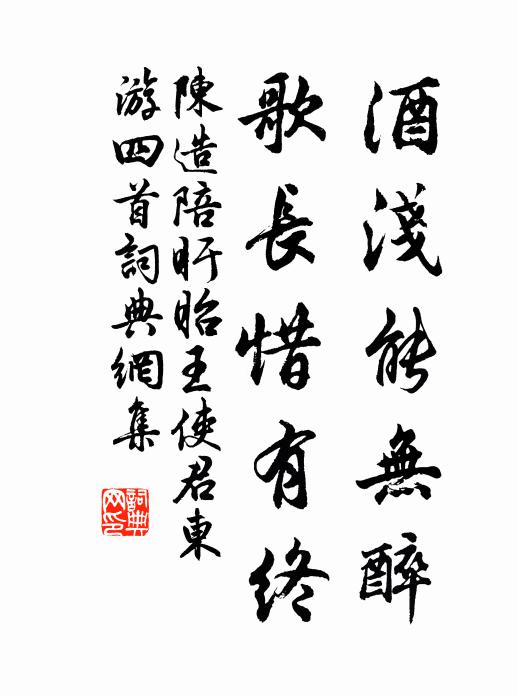 酒淺能無醉
歌長惜有終
陳造陪盱眙王使君東
游四首詞典網集
詞典网印